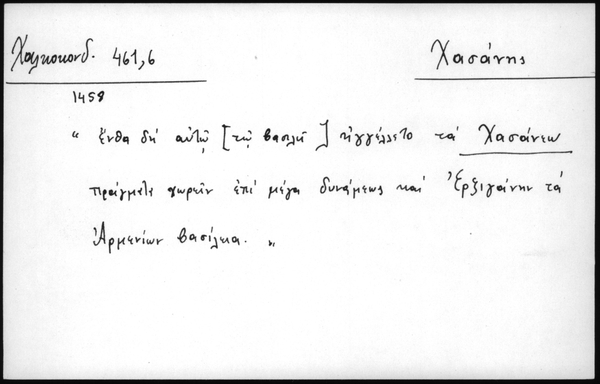 Χαλκοκονδ. 461,6
Χασάνης
1458
" ἔνθα δὴ αὐτῷ [τῷ βασιλεῖ] ἠγγέλλετο τὰ Χασάνεω
πράγματα χωρεῖν ἐπὶ μέγα δυνάμεως καὶ Ἐρζιγάνην τὰ
Ἀρμενίων βασίλεια. "